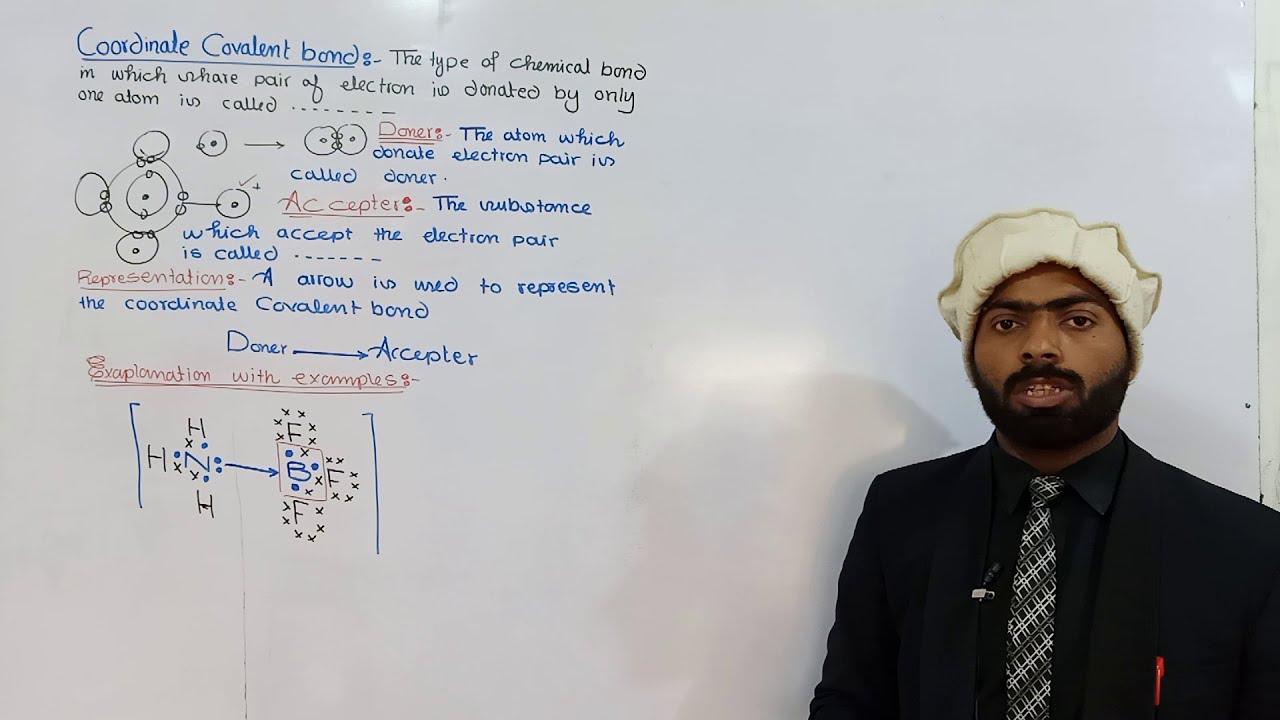 Coordinate Covalent bond:- The type of chemical bond
in which share pair of electron is donated by only
one atom is called --------
Doner:- The atom which
donate electron pair is
called doner.
+
Accepter:- The substance
which accept the electron pair
is called -------
Representation:- A arrow is used to represent
the coordinate Covalent bond
Doner → Accepter
Exaplamation with examples:-
H F
H N → B F
H F